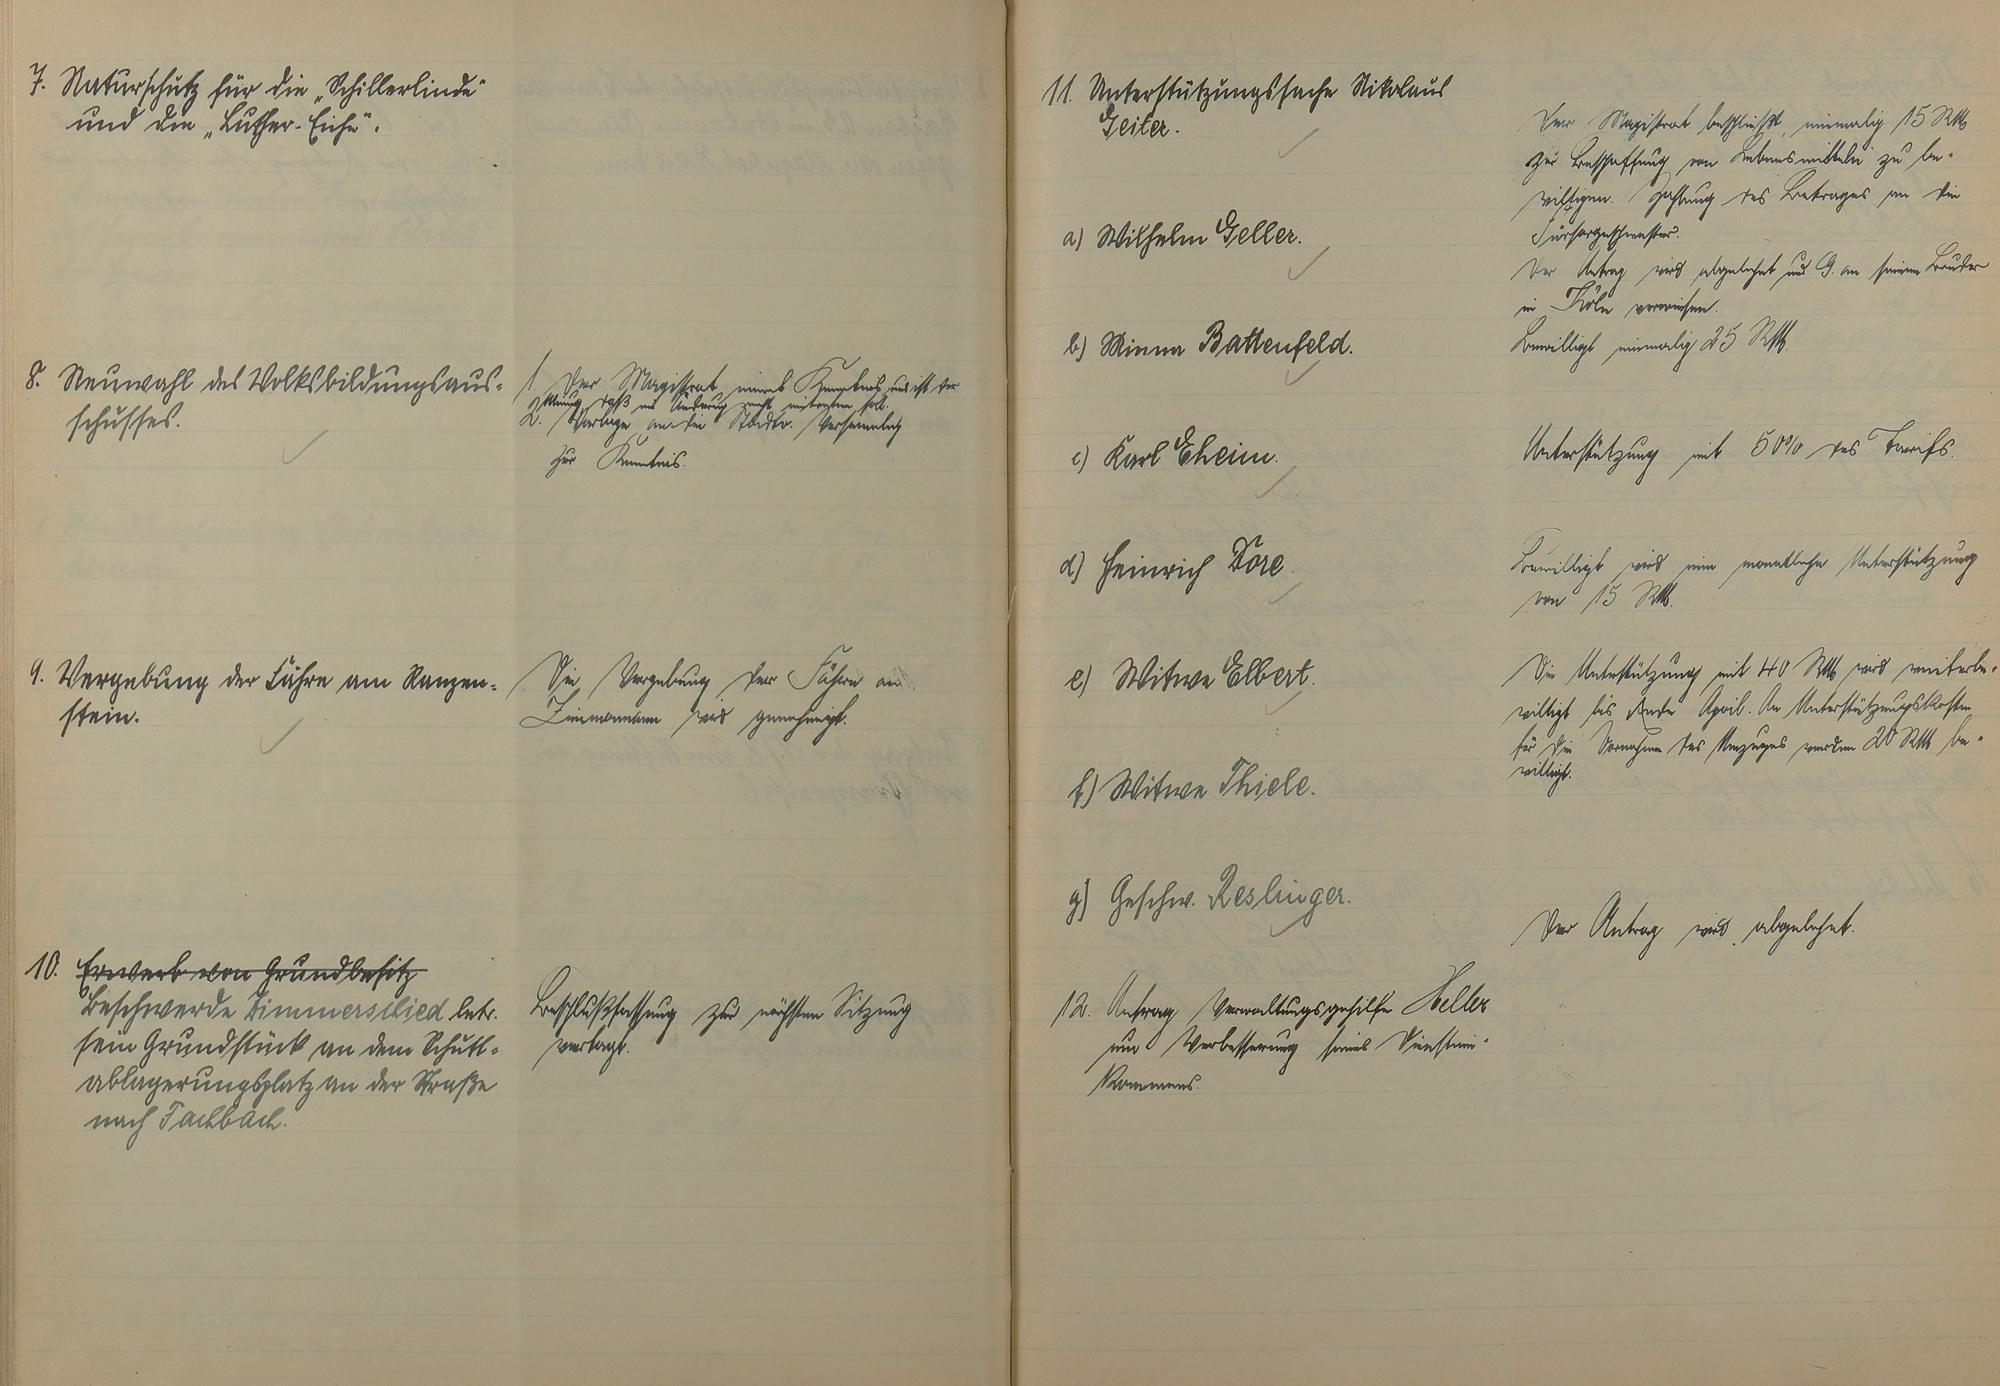 7. Naturschutz für die „Schillerlinde"
und die „Luther-Eiche".
8. Neuwahl des Volksbildungsaus-
schusses.
1. Der Magistrat nimmt Kenntnis und ist der
Meinung, daß eine Änderung nicht eintreten soll.
2. Vorlage an die Stadtv. Versammlg
zur Kenntnis.
9. Vergebung der Fähre am Ranzen-
stein.
Die Vergebung der Fähre an
Zimmermann wird genehmigt.
10. Erwerb von Grundbesitz
Beschwerde Zimmerschied betr.
sein Grundstück an dem Schutt-
ablagerungsplatz an der Straße
nach Fachbach.
Beschlußfassung zur nächsten Sitzung
vertagt.
11. Unterstützungssache Nikolaus
Geiler.
Der Magistrat beschließt, einmalig 15 RM
zur Beschaffung von Lebensmitteln zu be-
willigen. Zahlung des Betrages an die
Fürsorgeschwester.
a) Wilhelm Geller.
Der Antrag wird abgelehnt und G. an seinen Bruder
in Köln verwiesen.
b) Minna Battenfeld.
Bewilligt einmalig 25 RM.
c) Karl Eheim.
Unterstützung mit 50% des Tarifs.
d) Heinrich Döre.
Bewilligt wird eine monatliche Unterstützung
von 15 RM.
e) Witwe Elbert.
Die Unterstützung mit 40 RM wird weiterbe-
willigt bis Ende April. An Unterstützungskosten
für die Vornahme des Umzuges werden 20 RM be-
willigt.
f) Witwe Thiele.
g) Geschw. Reslinger.
Der Antrag wird abgelehnt.
12. Antrag Verwaltungsgehilfe Heller
um Verbesserung seines Dienstein-
kommens.